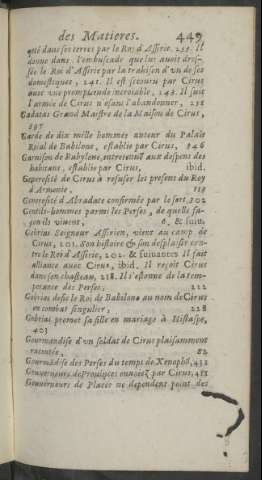 des Matieres. 449
qué dans ses terres par le Roi d'Assirie. 235. Il
donne dans l'embuscade que lui avoit dres-
sée le Roi d'Assirie par la trahison d'un de ses
domestiques, 241. Il est secouru par Cirus
avec une promptitude incroiable, 243. Il suit
l'armée de Cirus n'osant l'abandonner, 258
Gadatas Grand Maistre de la Maison de Cirus,
397
Garde de dix mille hommes autour du Palais
Roial de Babilone, establie par Cirus, 346
Garnison de Babylone, entretenuë aux despens des
habitans, establie par Cirus, ibid.
Generosité de Cirus à refuser les presens du Roy
d'Armenie. 139
Generosité d'Abradate confirmée par le sort, 302
Gentils-hommes parmi les Perses, de quelle fa-
çon ils vivent, 6. & suiv.
Gobrias Seigneur Assirien, vient au camp de
Cirus, 201. Son histoire & son desplaisir con-
tre le Roi d'Assirie, 202. & suivantes Il fait
alliance avec Cirus, ibid. Il reçoit Cirus
dans son chasteau, 218. Il s'estonne de la tem-
perance des Perses, 222
Gobrias defie le Roi de Babilone au nom de Cirus
en combat singulier, 228
Gobrias promet sa fille en mariage à Histaspe,
403
Gourmandise d'un soldat de Cirus plaisamment
racontée, 82
Gourmãdise des Perses du temps de Xenophõ, 431
Gouverneurs de Provinces envoiez par Cirus, 411
Gouverneurs de Places ne dependent point des